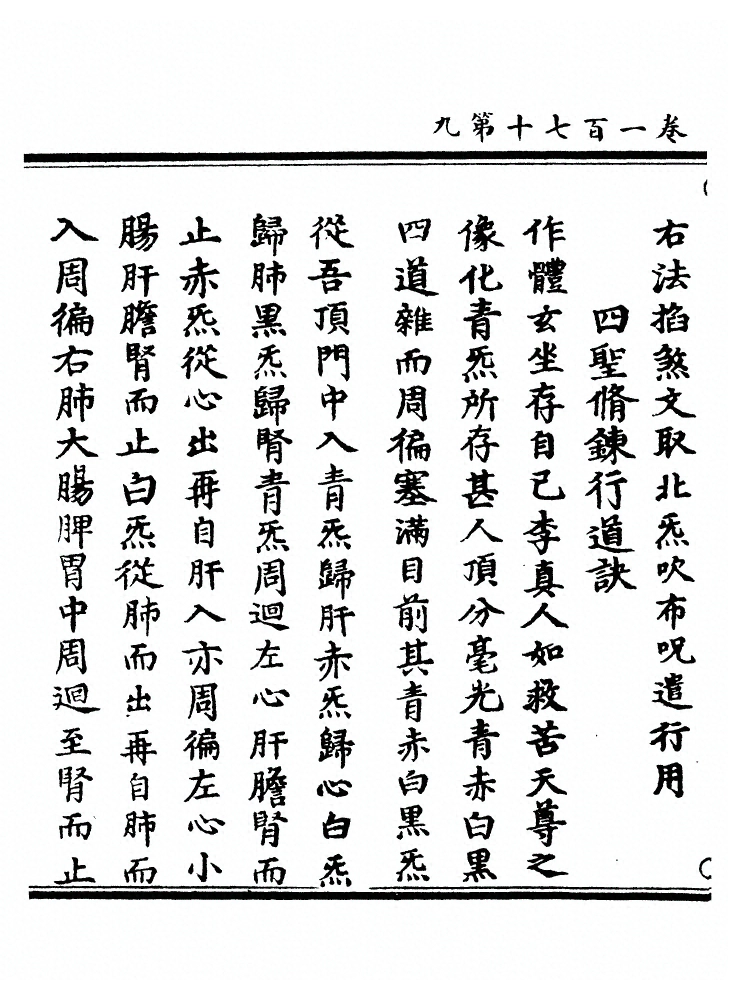 卷一百七十第九
右法掐煞文取北炁吹布呪遣行用
四聖脩鍊行道訣
作體玄坐存自已李真人如救苦天尊之
像化青炁所存甚人頂分毫光青赤白黑
四道雜而周徧塞滿目前其青赤白黑炁
從吾頂門中入青炁歸肝赤炁歸心白炁
歸肺黑炁歸腎青炁周迴左心肝膽腎而
止赤炁從心出再自肝入亦周徧左心小
腸肝膽腎而止白炁從肺而出再自肺而
入周徧右肺大腸脾胃中周迴至腎而止